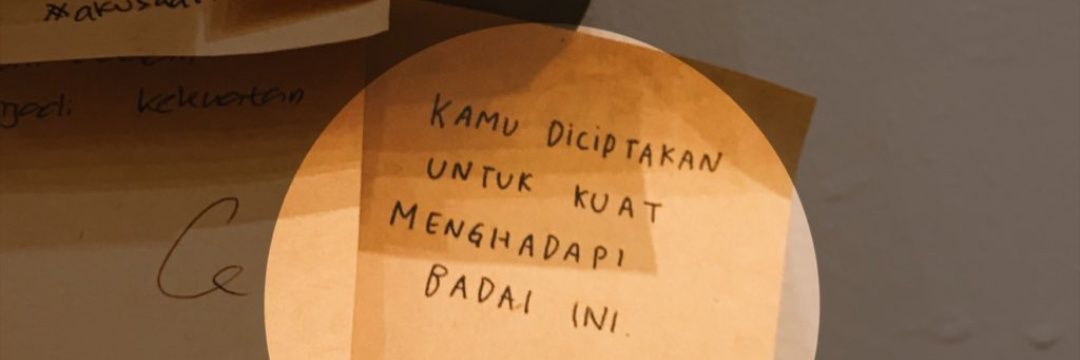 kekuatan
KAMU DICIPTAKAN
UNTUK KUAT
MENGHADAPI
BADAI INI.